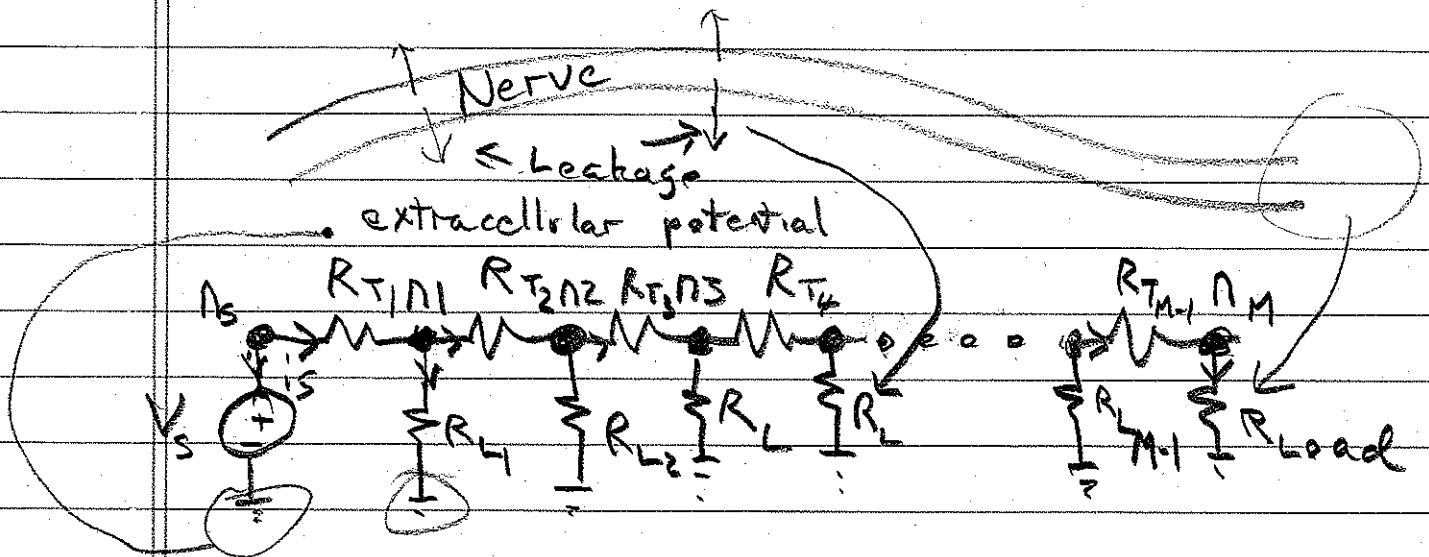 Nerve
← Leakage →
extracellular potential
n_s R_T1 n1 R_T2 n2 R_T3 n3 R_T4 R_TM-1 n_M
i_s
V_s + - R_L1 R_L2 R_L R_L R_LM-1 R_Load